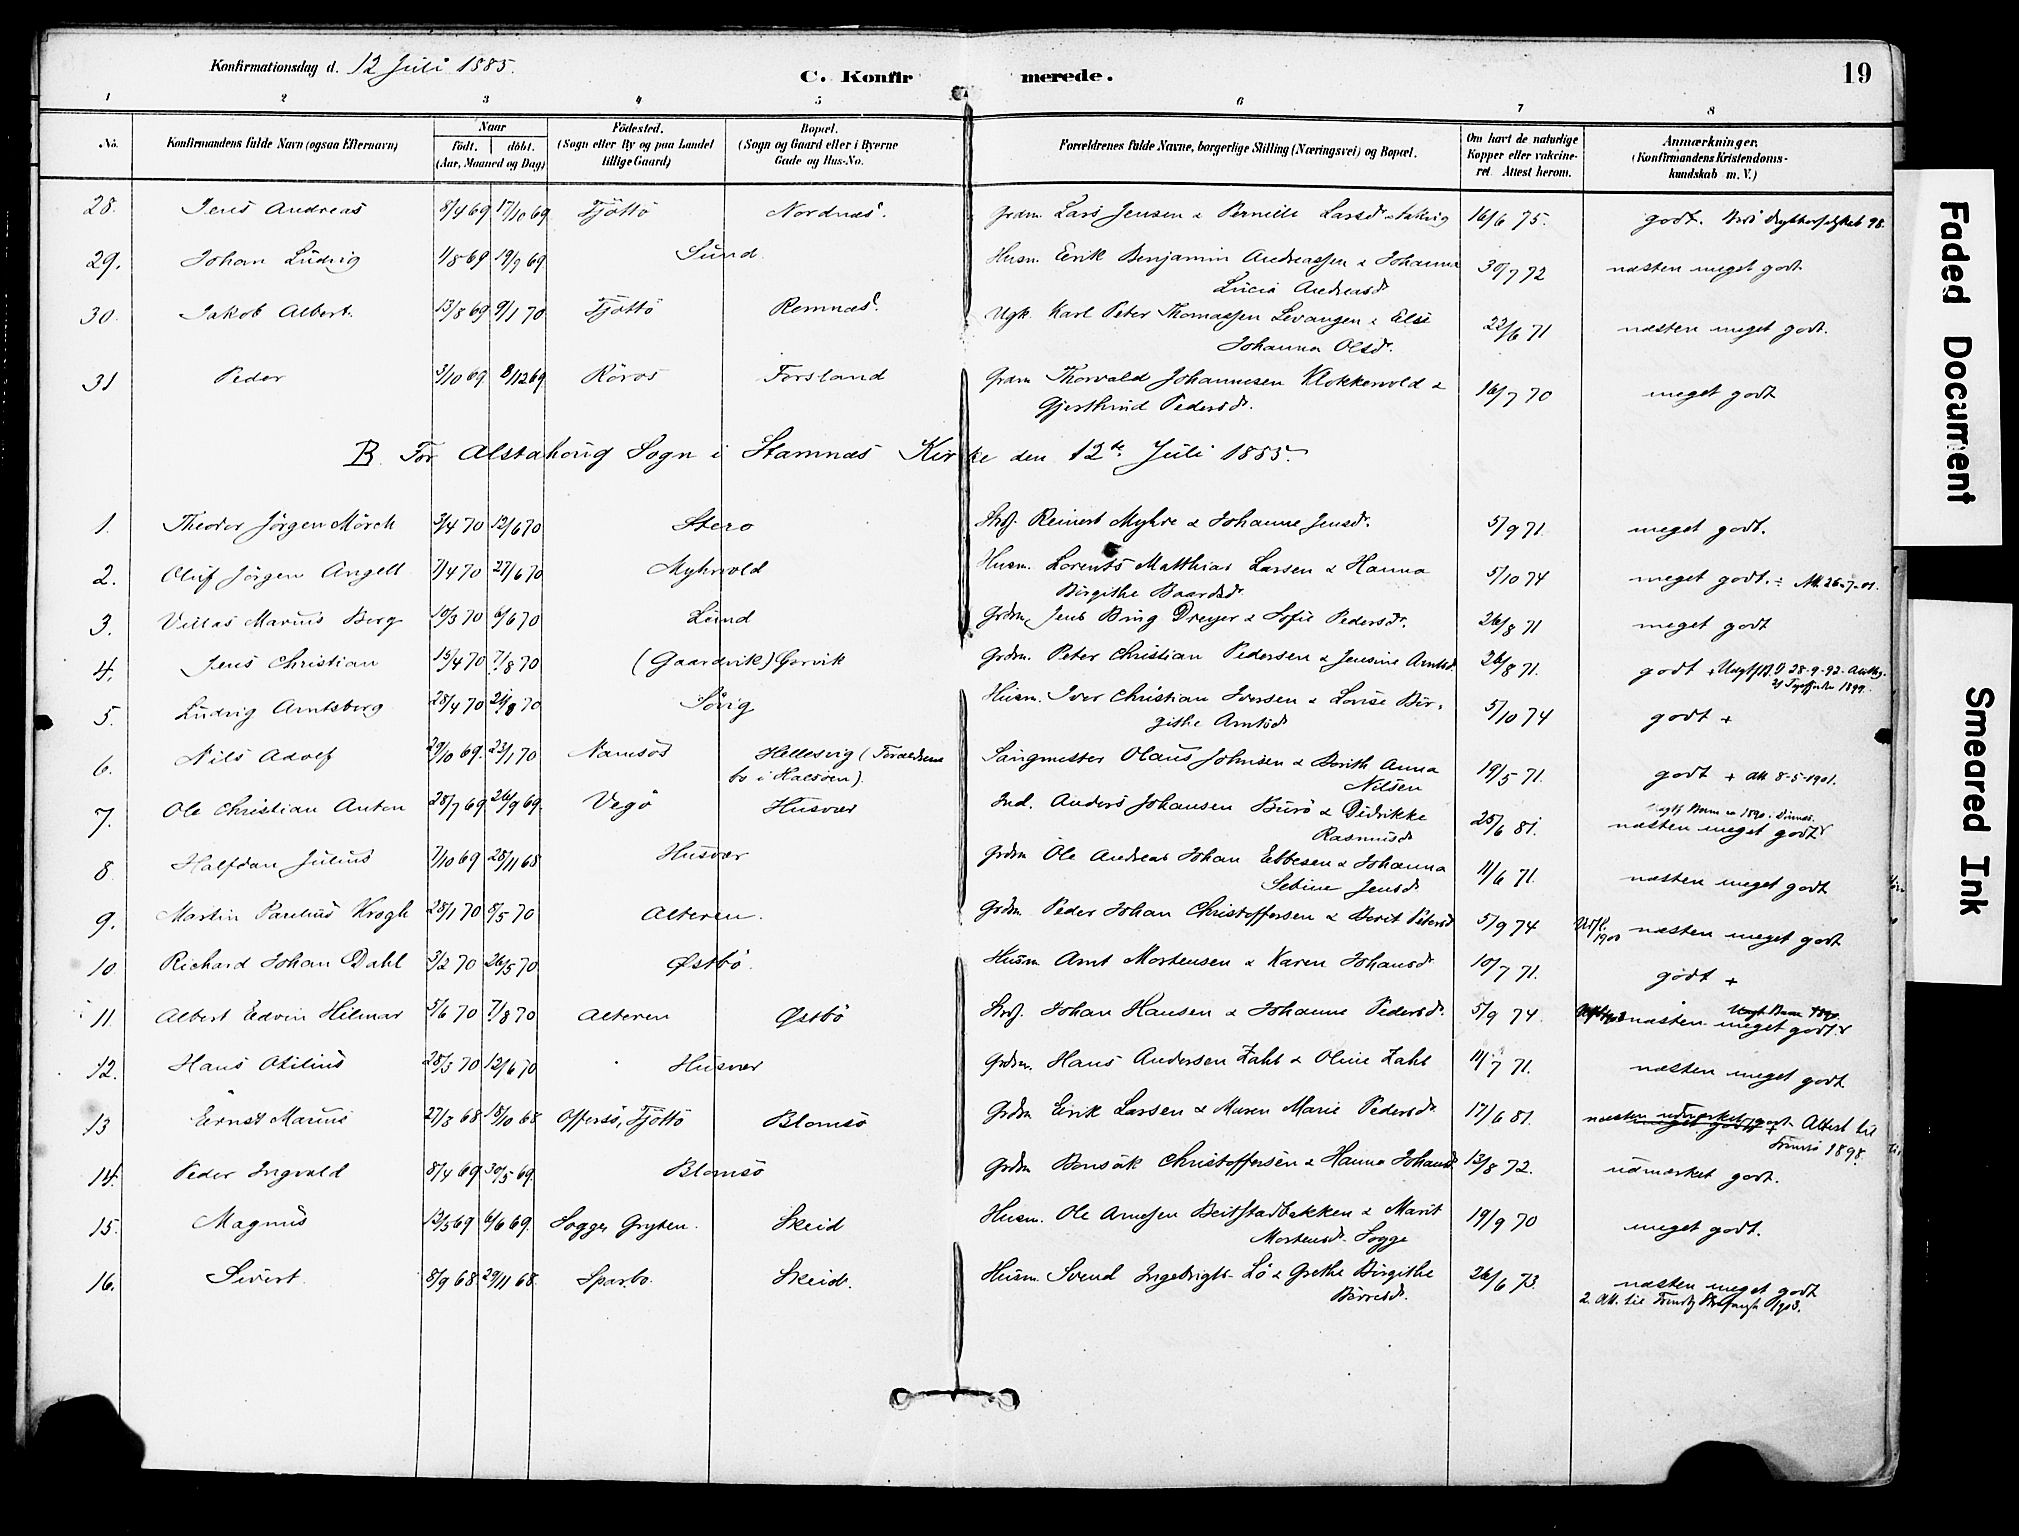 Konfirmationsdag d. 12 Juli 1885.
C. Konfirmerede.
19
1 2 3 4 5 6 7 8
No.
Konfirmandens fulde Navn (ogsaa Efternavn)
Naar
Födt. döbt.
(Aar, Maaned og Dag)
Födested.
(Sogn eller By og paa Landet
tillige Gaard)
Bopæl.
(Sogn og Gaard eller i Byerne
Gade og Hus-No.
Forældrenes fulde Navne, borgerlige Stilling (Næringsvei) og Bopæl.
Om havt de naturlige
Kopper eller vakcine-
ret. Attest herom.
Anmærkninger.
(Konfirmandens Kristendoms-
kundskab m. V.)
28. Jens Andreas 8/4 69 17/10 69 Tjöttö Nordnæs. Grdm. Lars Jensen & Pernille Larsd. 16/6 75. godt.
29. Johan Ludvig 1/8 69 19/9 69 Sund. Husm. Eerik Benjamin Andreassen & Johanna
Lucia Andreasd. 30/7 72 næsten meget godt
30. Jakob Albert. 13/8 69 9/1 70 Tjöttö Remnæs. Ugk. Karl Peter Thomassen Levangen & Else
Johanna Olsd. 22/6 71 næsten meget godt.
31 Peder 3/10 69 8/12 69 Röros Forsland Grdm Thorvald Johannesen Klokkervold &
Gjerthrud Pedersd. 16/7 70 meget godt
B. For Alstahoug Sogn i Stamnæs Kirke den 12te Juli 1885.
1. Theodor Jörgen Mörch 3/4 70 12/6 70 Stero Strf. Reinert Myhre & Johanne Jensd. 5/9 71. meget godt.
2. Oluf Jörgen Angell 7/4 70 27/6 70 Myhrvold Husm. Lorents Matthias Larsen & Hanna
Birgithe Baardsd. 5/10 74 meget godt. Att. 26-7-01.
3. Villas Marius Berg 10/3 70 6/6 70 Lund Grdm. Jens Bing Dreyer & Sofie Pedersd. 26/8 71 meget godt
4. Jens Christian 15/4 70 7/8 70 (Gaardvik) Gorvik Grdm. Peter Christian Pedersen & Jensine Arntsd. 26/8 71. godt + 28-9-92
1899.
5. Ludvig Arntsberg 28/4 70 21/8 70 Sövig Husm. Iver Christian Iversen & Lovise Bir-
githe Arntsd 5/10 74 godt +
6. Nils Adolf 29/10 69. 23/1 70 Namsos Hellesvig (Forældrene
bo i Halsöen). Sangmester Olaus Johnsen & Berith Anna
Nilsen 19/5 71. godt + Att. 8-5-1901.
7. Ole Christian Anton 28/7 69 26/9 69. Vegö Husvær Ind. Anders Johansen Burö & Didrikke
Rasmusd. 25/6 81. næsten meget godt
8. Halfdan Julius 7/10 69 28/11 68 Husvær Grdm Ole Andreas Johan Ebbesen & Johanna
Sebine Jensd. 11/6 71. næsten meget godt
9. Martin Paulus Krogh 28/1 70 8/5 70 Alteren. Grdm. Peder Johan Christoffersen & Berit Pedersd 5/9 74 1900 næsten meget godt
10. Richard Johan Dahl 3/2 70 26/5 70. Østbö. Husm Arnt Mortensen & Karen Johansd. 10/7 71. godt +
11. Albert Edvin Hilmar 5/6 70 7/8 70 Alteren Østbö Strf. Johan Hansen & Johanne Pedersd. 5/9 74. næsten meget godt
12. Hans Otilius 28/3 70 12/6 70 Husvær Grdm. Hans Andersen Zahl & Oline Zahl 11/7 71. næsten meget godt
13 Ernst Marius 27/3 68 18/10 68 Offersö, Tjöttö Blomsö Grdm Eirik Larsen & Maren Marie Pedersd. 17/6 81. næsten udmærket godt Attest til
Tromsö 1898.
14. Peder Ingvald 8/4 69 30/5 69. Blomsö Grdm Bonsak Christoffersen & Hanna Johansd 13/8 72. udmærket godt.
15. Magnus 12/5 69 6/6 69. Sogge, Gryten. Skeid Husm. Ole Arnesen Beitstadbakken & Marit
Mortensd. Sogge 19/9 70 meget godt.
16. Sivert. 8/9 68 29/11 68. Sparbo. Skeid. Husm. Svend Ingebrigts. Lö & Grethe Birgithe
Börresd. 26/6 73. næsten meget godt
2. Att. til
Faded Document
Smeared Ink